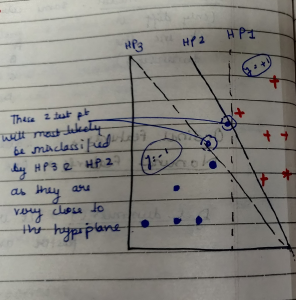 HP3 HP2 HP1
y=+1
These 2 test pt
will most likely
be misclassified
by HP3 & HP2
y=-1
as they are
very close to
the hypeplane